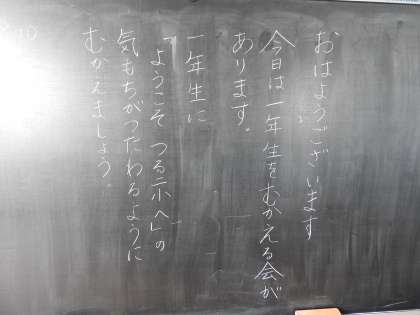 おはようございます
今日は一年生をむかえる会が
あります。
一年生に
「ようこそ つる小へ」の
気もちがつたわるように
むかえましょう。